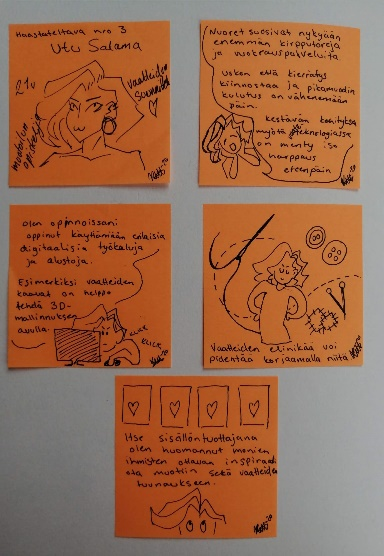 Haastateltava nro 3
Utu Salama
21v
muotoilun opiskelija
vaatteiden
suunnittelu
Nuoret suosivat nykyään
enemmän kirpputoreja
ja vuokrauspalveluita
Uskon että kierrätys
kiinnostaa ja pikamuodin
kulutus on vähenemään
päin.
kestävän kehityksen
myötä teknologiassa
on menty iso
harppaus
eteenpäin
Olen opinnoissani
oppinut käyttämään erilaisia
digitaalisia työkaluja
ja alustoja.
Esimerkiksi vaatteiden
kaavat on helppo
tehdä 3D-
mallinnuksen
avulla.
CLICK
CLICK
Vaatteiden elinikää voi
pidentää korjaamalla niitä
Itse sisällöntuottajana
olen huomannut monien
ihmisten ottavan inspiraati-
ota muotiin sekä vaatteiden
tuunaukseen.